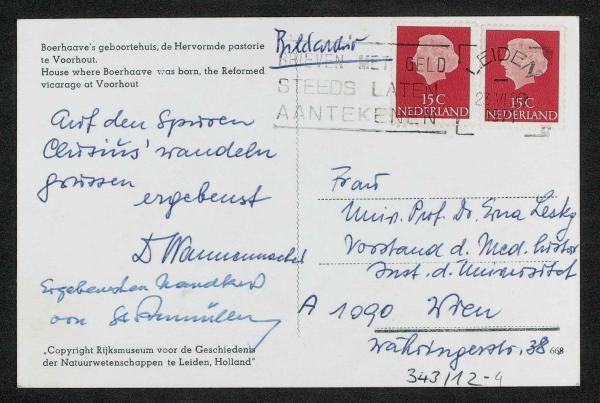 Boerhaave's geboortehuis, de Hervormde pastorie
te Voorhout.
House where Boerhaave was born, the Reformed
vicarage at Voorhout
Bildarchiv
BRIEVEN MET GELD
STEEDS LATEN
AANTEKENEN
LEIDEN
15 C
NEDERLAND
15 C
NEDERLAND
Auf den Spuren
Clusius' wandeln
grüssen
ergebenst
Ergebensten Handkuß
von
Frau
Univ. Prof. Dr. Erna Lesky
Vorstand d. Med. histor.
Inst. d. Universität
A 1090 Wien
Währingerstr. 38
668
343/12-4
„Copyright Rijksmuseum voor de Geschiedenis
der Natuurwetenschappen te Leiden, Holland"